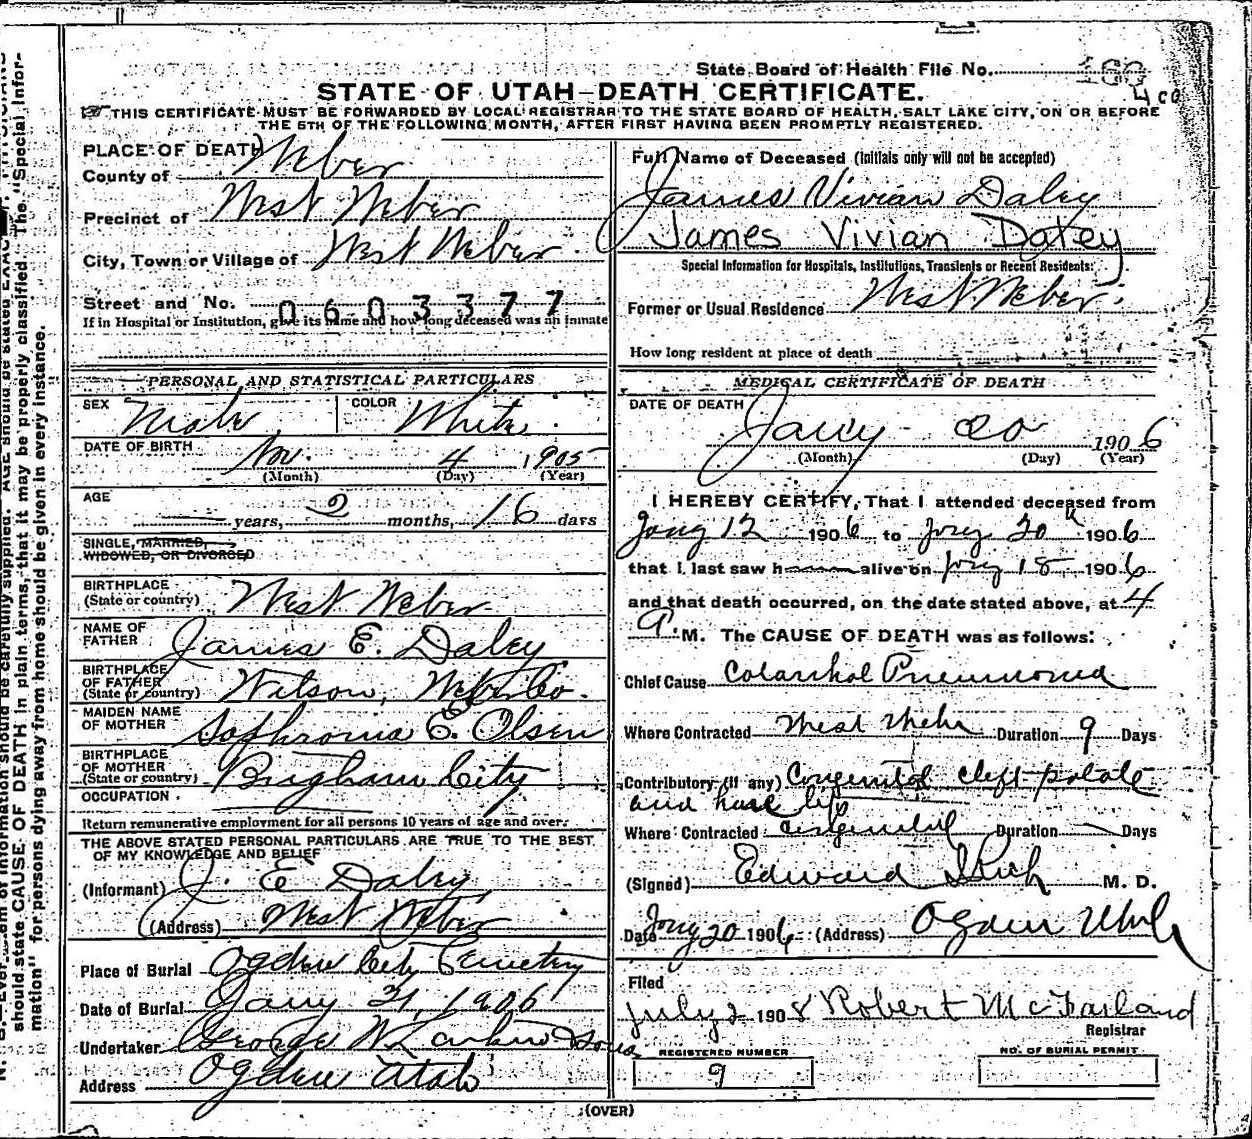 State Board of Health File No.
STATE OF UTAH-DEATH CERTIFICATE.
THIS CERTIFICATE MUST BE FORWARDED BY LOCAL REGISTRAR TO THE STATE BOARD OF HEALTH, SALT LAKE CITY, ON OR BEFORE
THE 5TH OF THE FOLLOWING MONTH, AFTER FIRST HAVING BEEN PROMPTLY REGISTERED.
PLACE OF DEATH
County of Weber
Precinct of West Weber
City, Town or Village of West Weber
Street and No. 0603377
If in Hospital or Institution, give its name and how long deceased was an inmate
PERSONAL AND STATISTICAL PARTICULARS
SEX Male COLOR White
DATE OF BIRTH Nov. 4 1905
(Month) (Day) (Year)
AGE
years, 2 months, 16 days
SINGLE, MARRIED,
WIDOWED, OR DIVORCED
BIRTHPLACE
(State or country) West Weber
NAME OF
FATHER James E. Daley
BIRTHPLACE
OF FATHER
(State or country) Wilson, Weber Co.
MAIDEN NAME
OF MOTHER Sophronia E. Olsen
BIRTHPLACE
OF MOTHER
(State or country) Brigham City
OCCUPATION
Return remunerative employment for all persons 10 years of age and over.
THE ABOVE STATED PERSONAL PARTICULARS ARE TRUE TO THE BEST
OF MY KNOWLEDGE AND BELIEF
(Informant) J. E Daley
(Address) West Weber
Place of Burial Ogden City Cemetry
Date of Burial Jany 21, 1906
Undertaker George W Larkin & Sons
Address Ogden Utah
Full Name of Deceased (Initials only will not be accepted)
James Vivian Daley
James Vivian Daley
Special Information for Hospitals, Institutions, Transients or Recent Residents:
Former or Usual Residence West Weber
How long resident at place of death
MEDICAL CERTIFICATE OF DEATH
DATE OF DEATH
Jany 20 1906
(Month) (Day) (Year)
I HEREBY CERTIFY, That I attended deceased from
Jany 12 1906 to Jany 20th 1906
that I last saw h alive on Jany 18 1906
and that death occurred, on the date stated above, at 4
A M. The CAUSE OF DEATH was as follows:
Chief Cause Pneumonia
Where Contracted West Weber Duration 9 Days
Contributory (if any) Congenital cleft palate
and hare lip
Where Contracted congenital Duration Days
(Signed) Edward I Rich M. D.
Date Jany 20 1906 (Address) Ogden Utah
Filed
July 2 1908 Robert McFarland
Registrar
REGISTERED NUMBER
9
NO. OF BURIAL PERMIT
(OVER)
should state CAUSE OF DEATH in plain terms, that it may be properly classified. The "Special Infor-
mation" for persons dying away from home should be given in every instance.